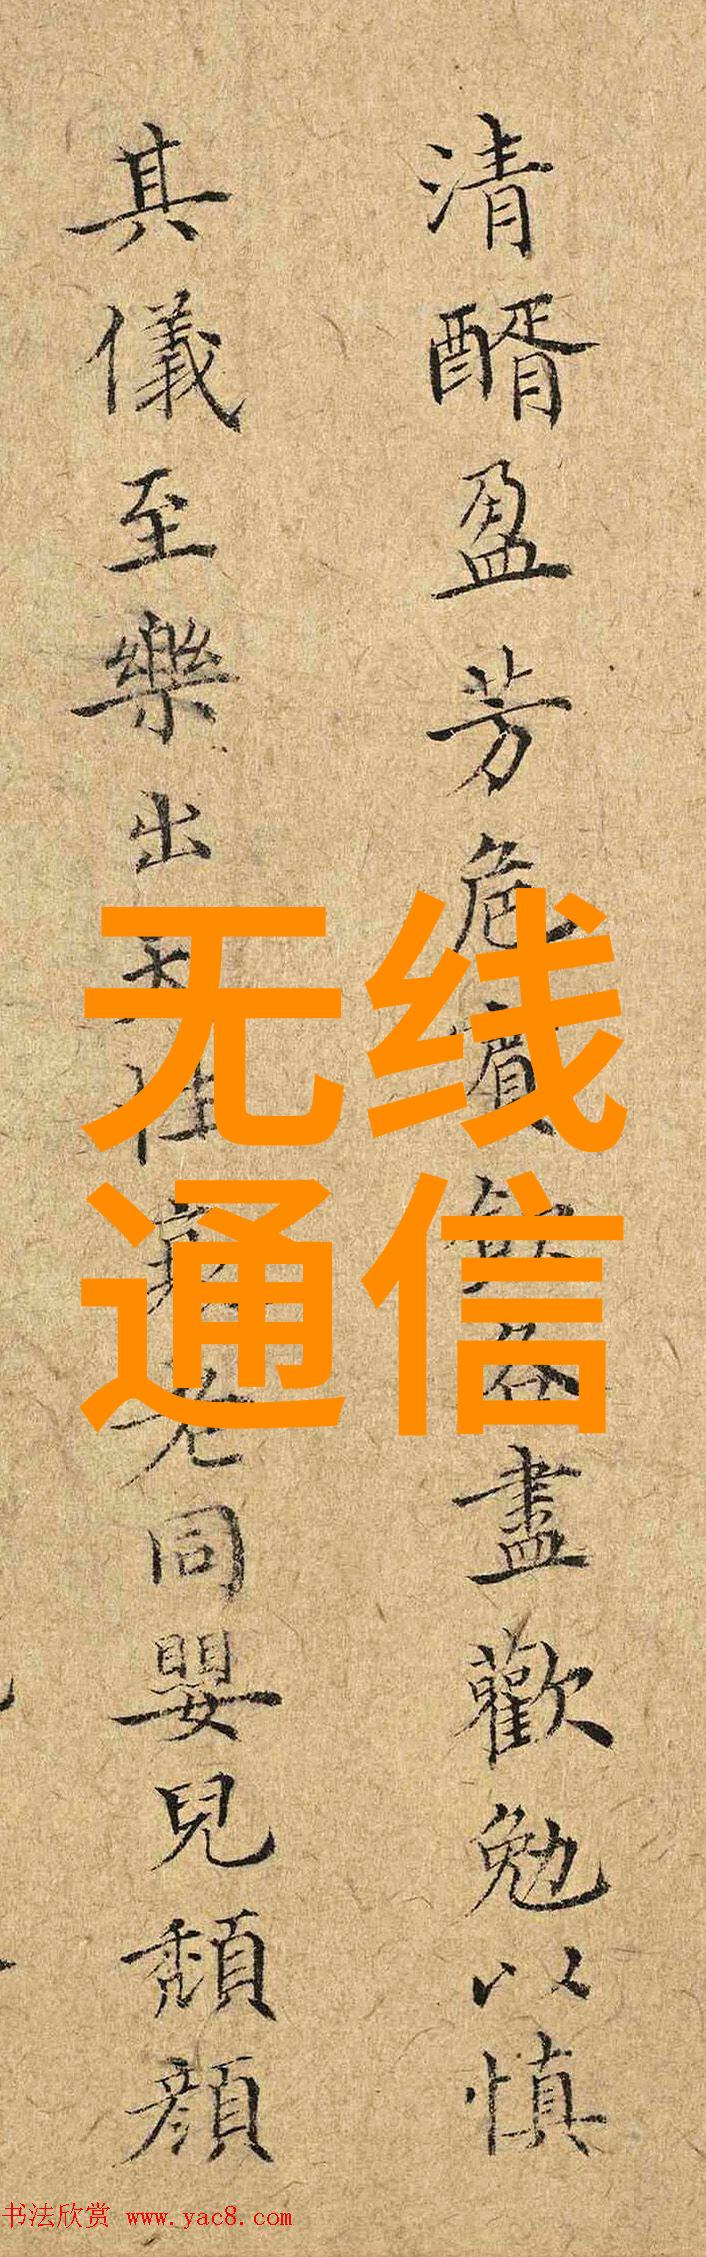 清醑盈芳
盡歡勉以慎
其儀至樂出
老同嬰兒頹顏
无线
通信
书法欣赏 www.yac8.com